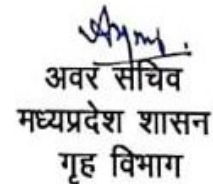 अवर सचिव
मध्यप्रदेश शासन
गृह विभाग